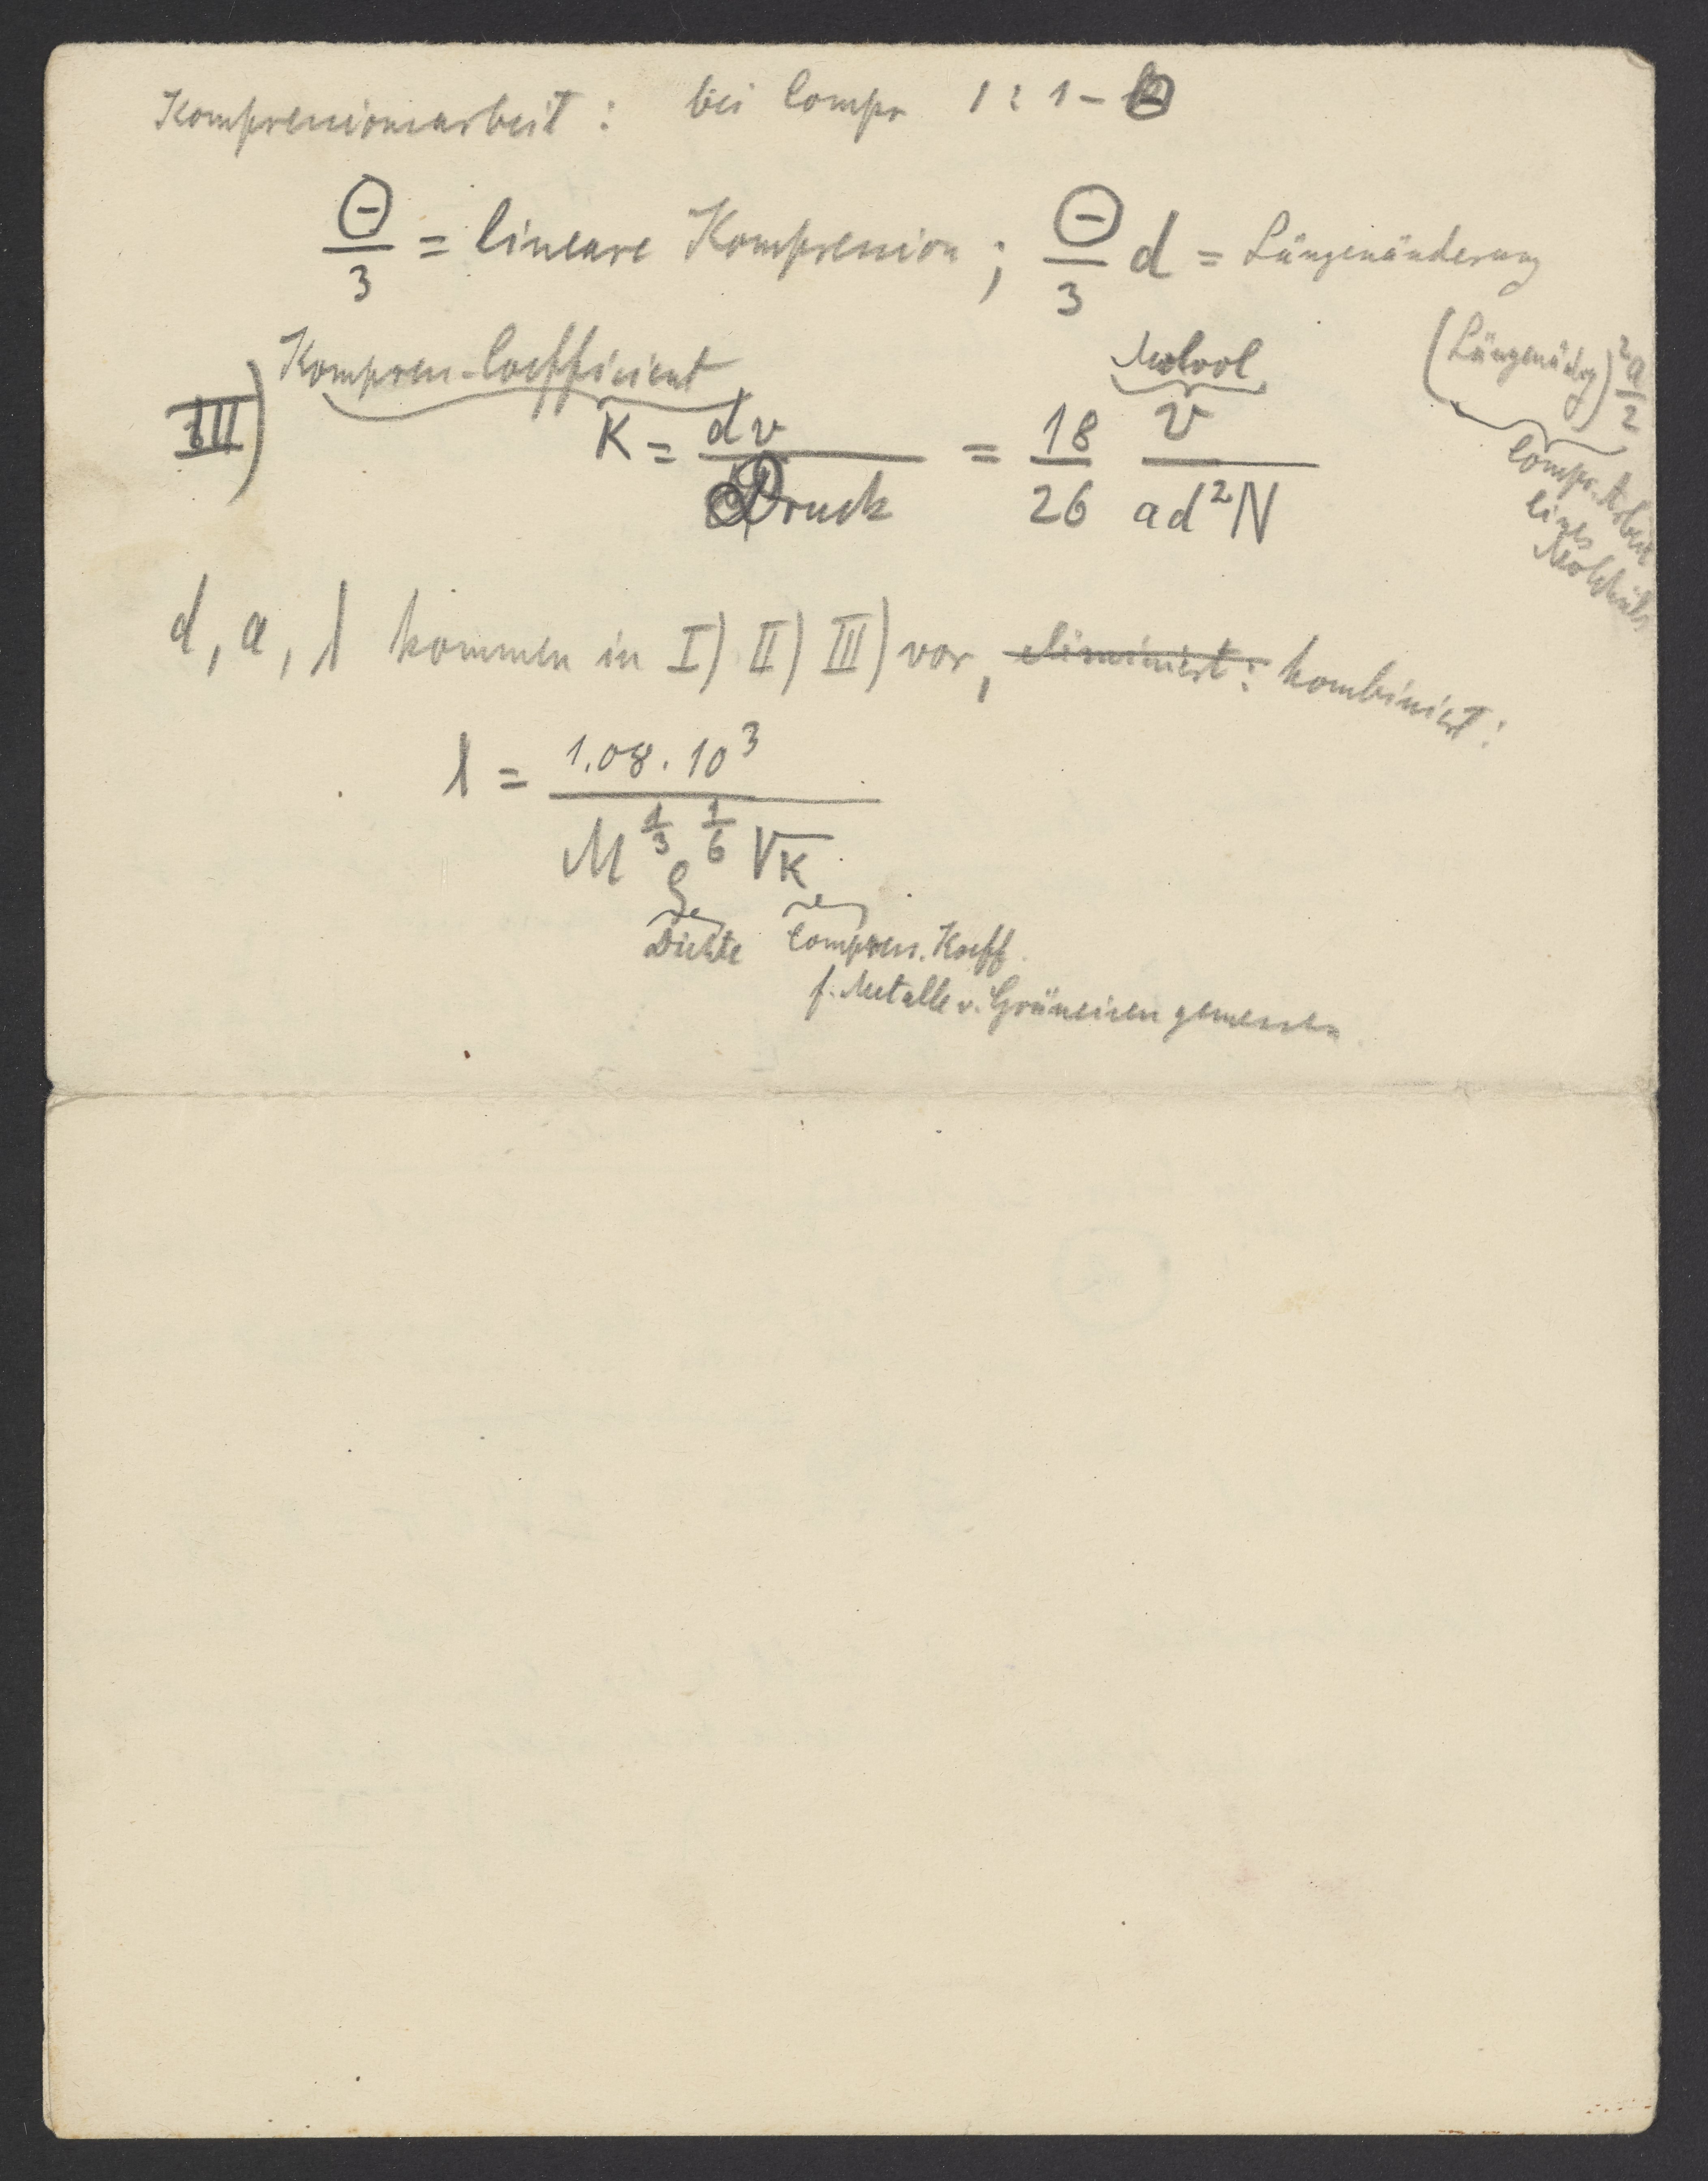 Kompressionsarbeit: bei Compr 1 : 1 – Θ
Θ/3 = lineare Kompression; Θ/3 d = Längenänderung
Kompress-Coefficient
Molvol
(Längenädg)² a/2
III) K = dv/Druck = 18/26 v/ad²N
Compr. Arbeit
eines
Moleküls
d, a, λ kommen in I) II) III) vor, eliminiert: kombiniert:
λ = 1.08 · 10³ / M^1/3 ρ^1/6 √K
Dichte Compress. Koeff.
f. Metalle v. Grüneisen gemessen.